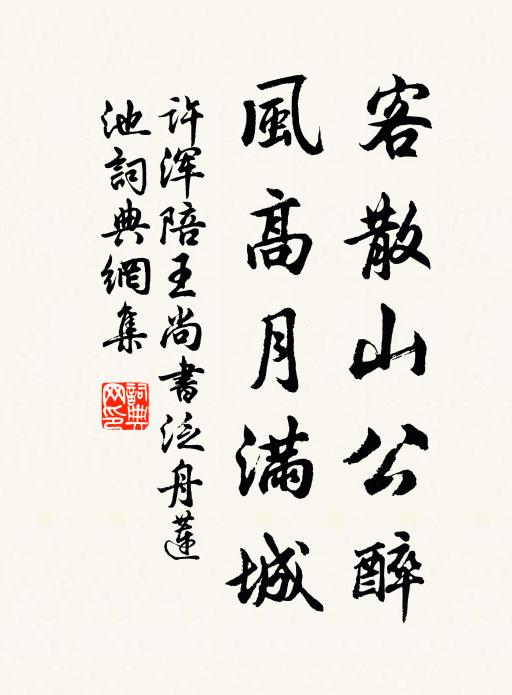 客散山公醉
風高月滿城
许渾陪王尚書泛舟蓮
池詞典網集
詞典
网印